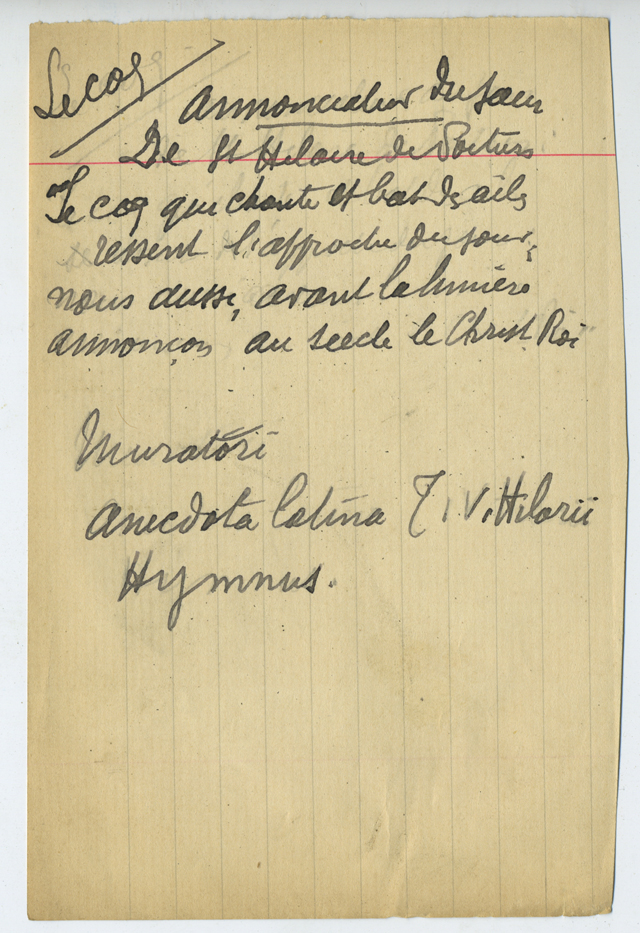 Le coq
annonciateur du jour
De St Hilaire de Poitiers
Le coq qui chante et bat des ailes
ressent l'approche du jour,
nous aussi, avant la lumière
annonçons au siècle le Christ Roi
Muratori
Anecdota latina T. V. Hilarii
Hymnus.